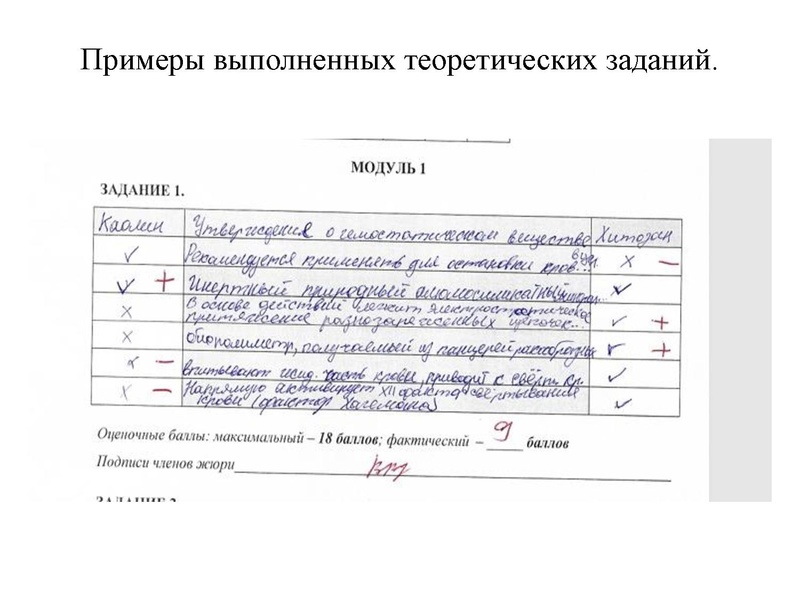 Примеры выполненных теоретических заданий.
МОДУЛЬ 1
ЗАДАНИЕ 1.
Каолин Утверждения о гемостатическом веществе Хитозан
✓ Рекомендуется применять для остановки кров... X –
✓ + Инертный природный алюмосиликатный минерал... ✓
X В основе действий лежит электростатическое притяжение разнозаряженных ✓ +
X биополимер, получаемый из панцирей ракообразных ✓ +
– впитывают жид. часть крови, приводит к свёрт. кр. ✓
X – Напрямую активирует XII фактор свёртывания крови (фактор Хагемана) ✓
Оценочные баллы: максимальный – 18 баллов; фактический – 9 баллов
Подписи членов жюри
ЗАДАНИЕ 2.